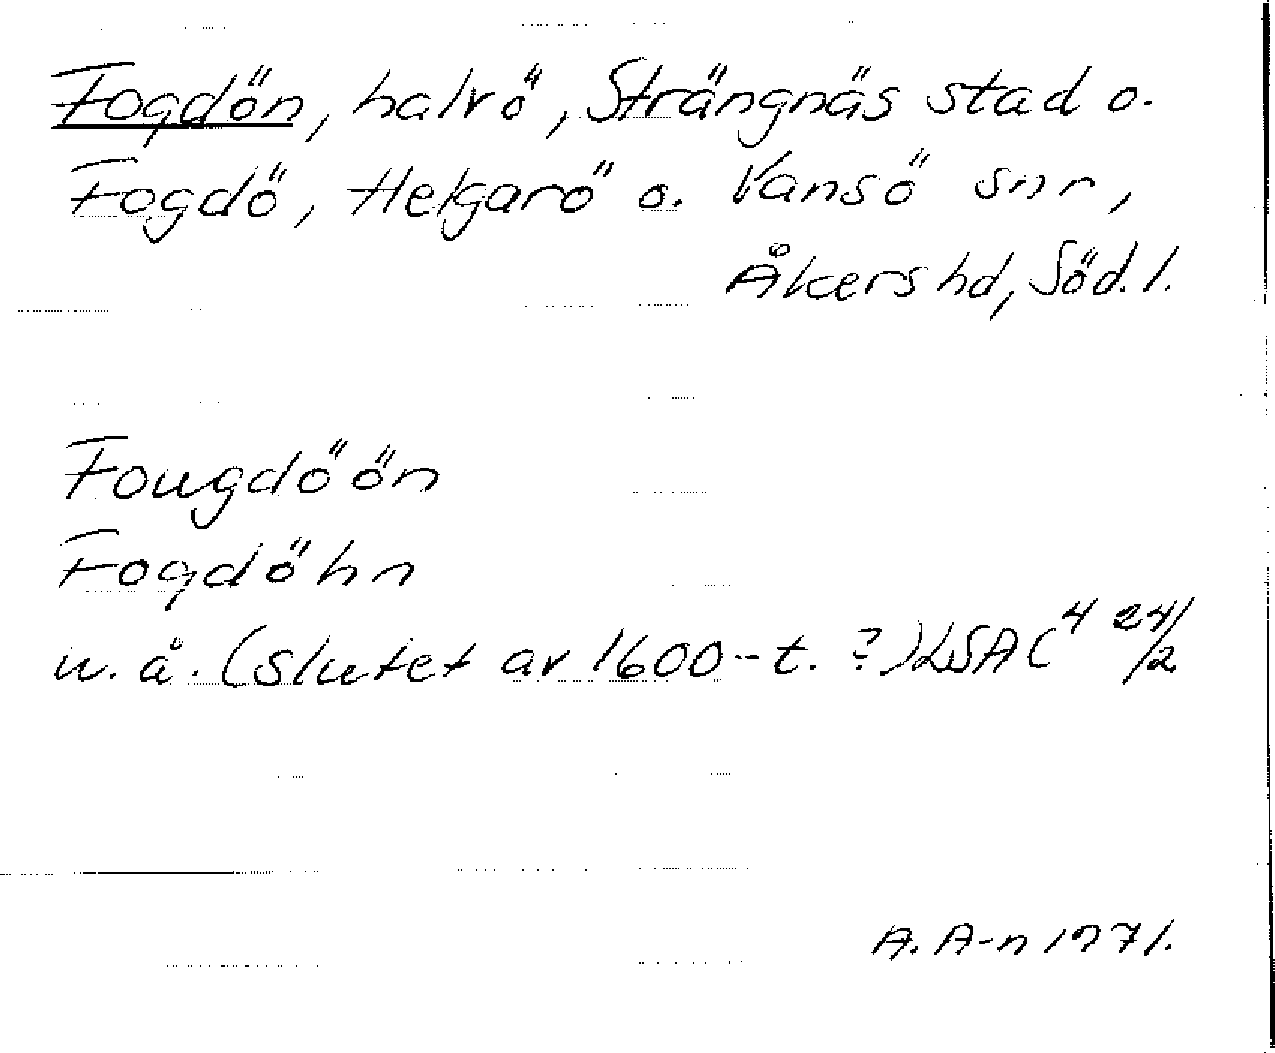 Fogdön, halvö, Strängnäs stad o.
Fogdö, Helgarö o. Vansö snr,
Åkers hd, Söd. l.
Fougdöön
Fogdöhn
u. å. (slutet av 1600-t. ?) LSA C⁴ 24/2
A. A-n 1971.